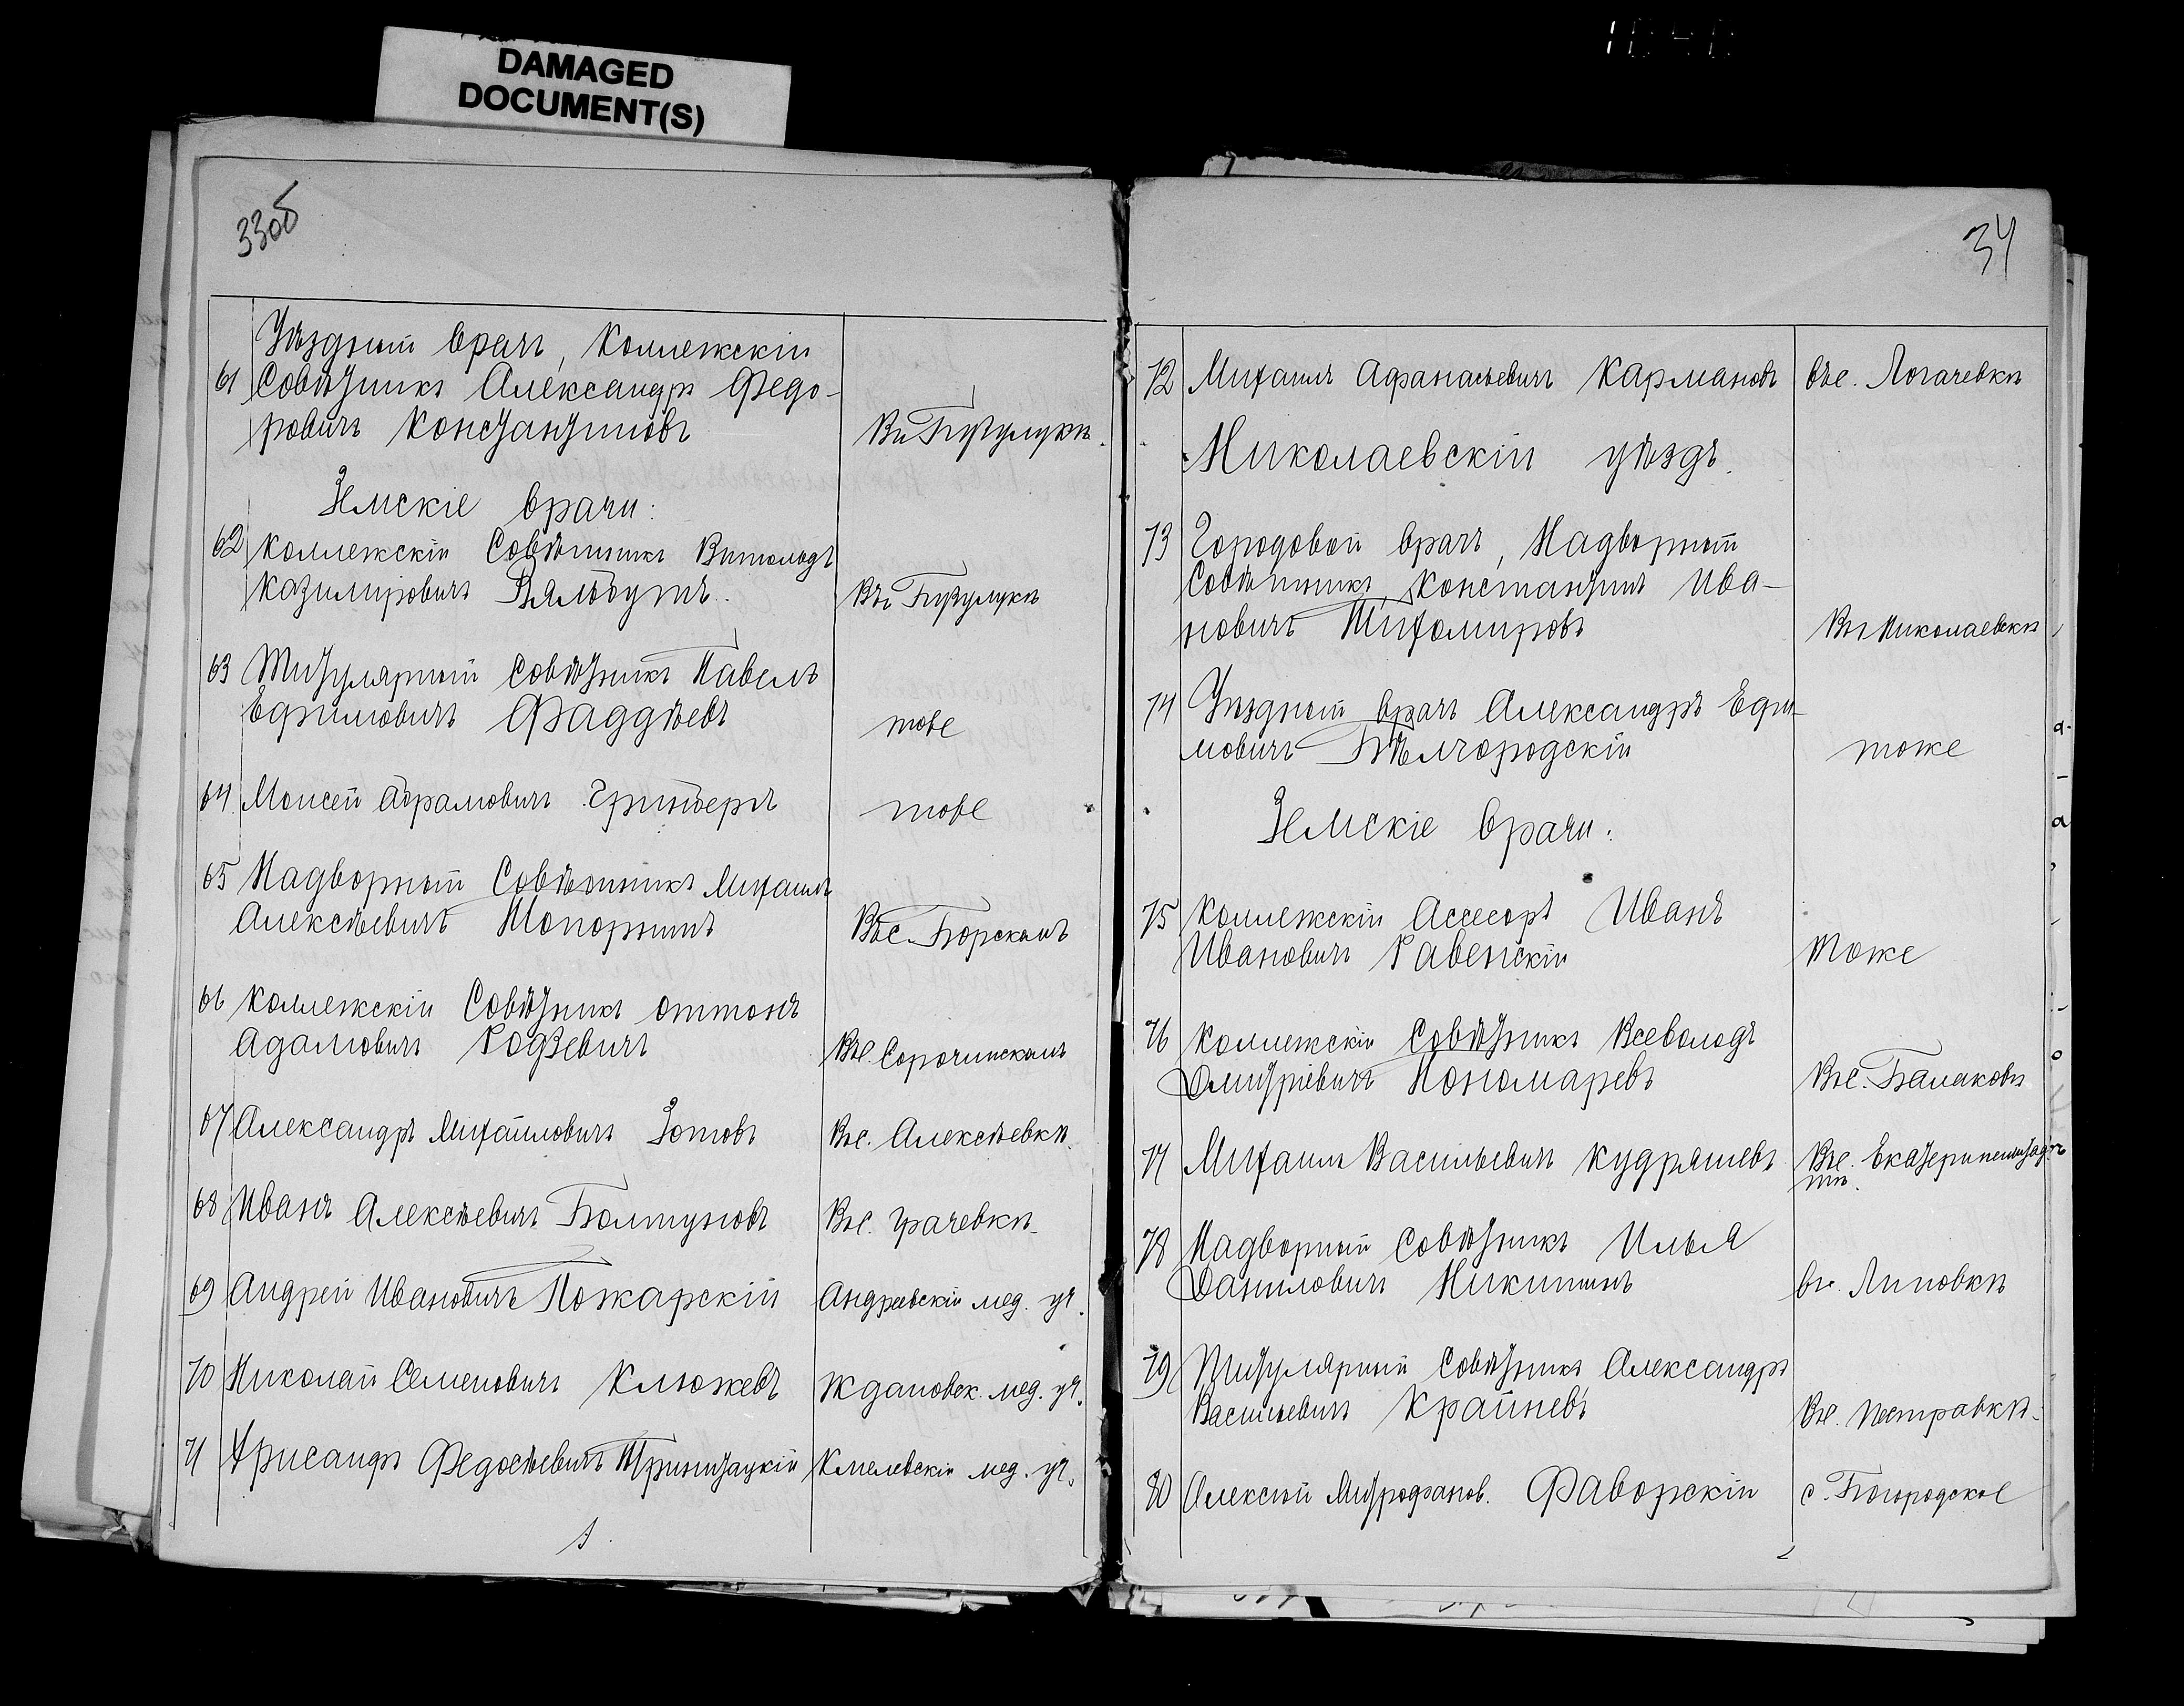 DAMAGED
DOCUMENT(S)
33об
Уѣздный врачъ, Коллежскій
61 Совѣтникъ Александръ Федо-
ровичъ Константиновъ Въ Бузулукѣ.
Земскіе врачи:
62 Коллежскій Совѣтникъ Витольдъ
Казиміровичъ Вялбутъ. Въ Бузулукѣ
63 Титулярный Совѣтникъ Павелъ
Ефимовичъ Фаддѣевъ тоже
64 Моисей Абрамовичъ Гринбергъ тоже
65 Надворный Совѣтникъ Михаилъ
Алексѣевичъ Топорнинъ Въ с. Борскомъ
66 Коллежскій Совѣтникъ Оттонъ
Адамовичъ Родзевичъ Въ с. Сорочинскомъ
67 Александръ Михайловичъ Зотовъ Въ с. Алексѣевкѣ.
68 Иванъ Алексѣевичъ Болтуновъ Въ с. Грачевкѣ.
69 Андрей Ивановичъ Пожарскій Андреевскій мед. уч.
70 Николай Семеновичъ Клюжевъ Ждановск. мед. уч.
71 Хрисанфъ Федосѣевичъ мед. уч.
34
72 Михаилъ Афанасьевичъ Кармановъ въ с. Логачевкѣ
Николаевскій уѣздъ.
73 Городовой врачъ, Надворный
Совѣтникъ, Константинъ Ива-
новичъ Тихомировъ Въ Николаевскѣ
74 Уѣздный врачъ Александръ Ефи-
мовичъ Бѣлгородскій тоже
Земскіе врачи:
75 Коллежскій Ассесоръ Иванъ
Ивановичъ Равенскій Тоже
76 Коллежскій Совѣтникъ Всеволодъ
Дмитріевичъ Пономаревъ Въ с. Балаковѣ
77 Михаилъ Васильевичъ Кудряшевъ Въ с. Екатериненштад-
тѣ.
78 Надворный Совѣтникъ Илья
Даниловичъ Никитинъ въ с. Липовкѣ
79 Титулярный Совѣтникъ Александръ
Васильевичъ Крайневъ Въ с. Пестравкѣ.
80 Алексѣй Митрофанов. Фаворскій с. Богородское